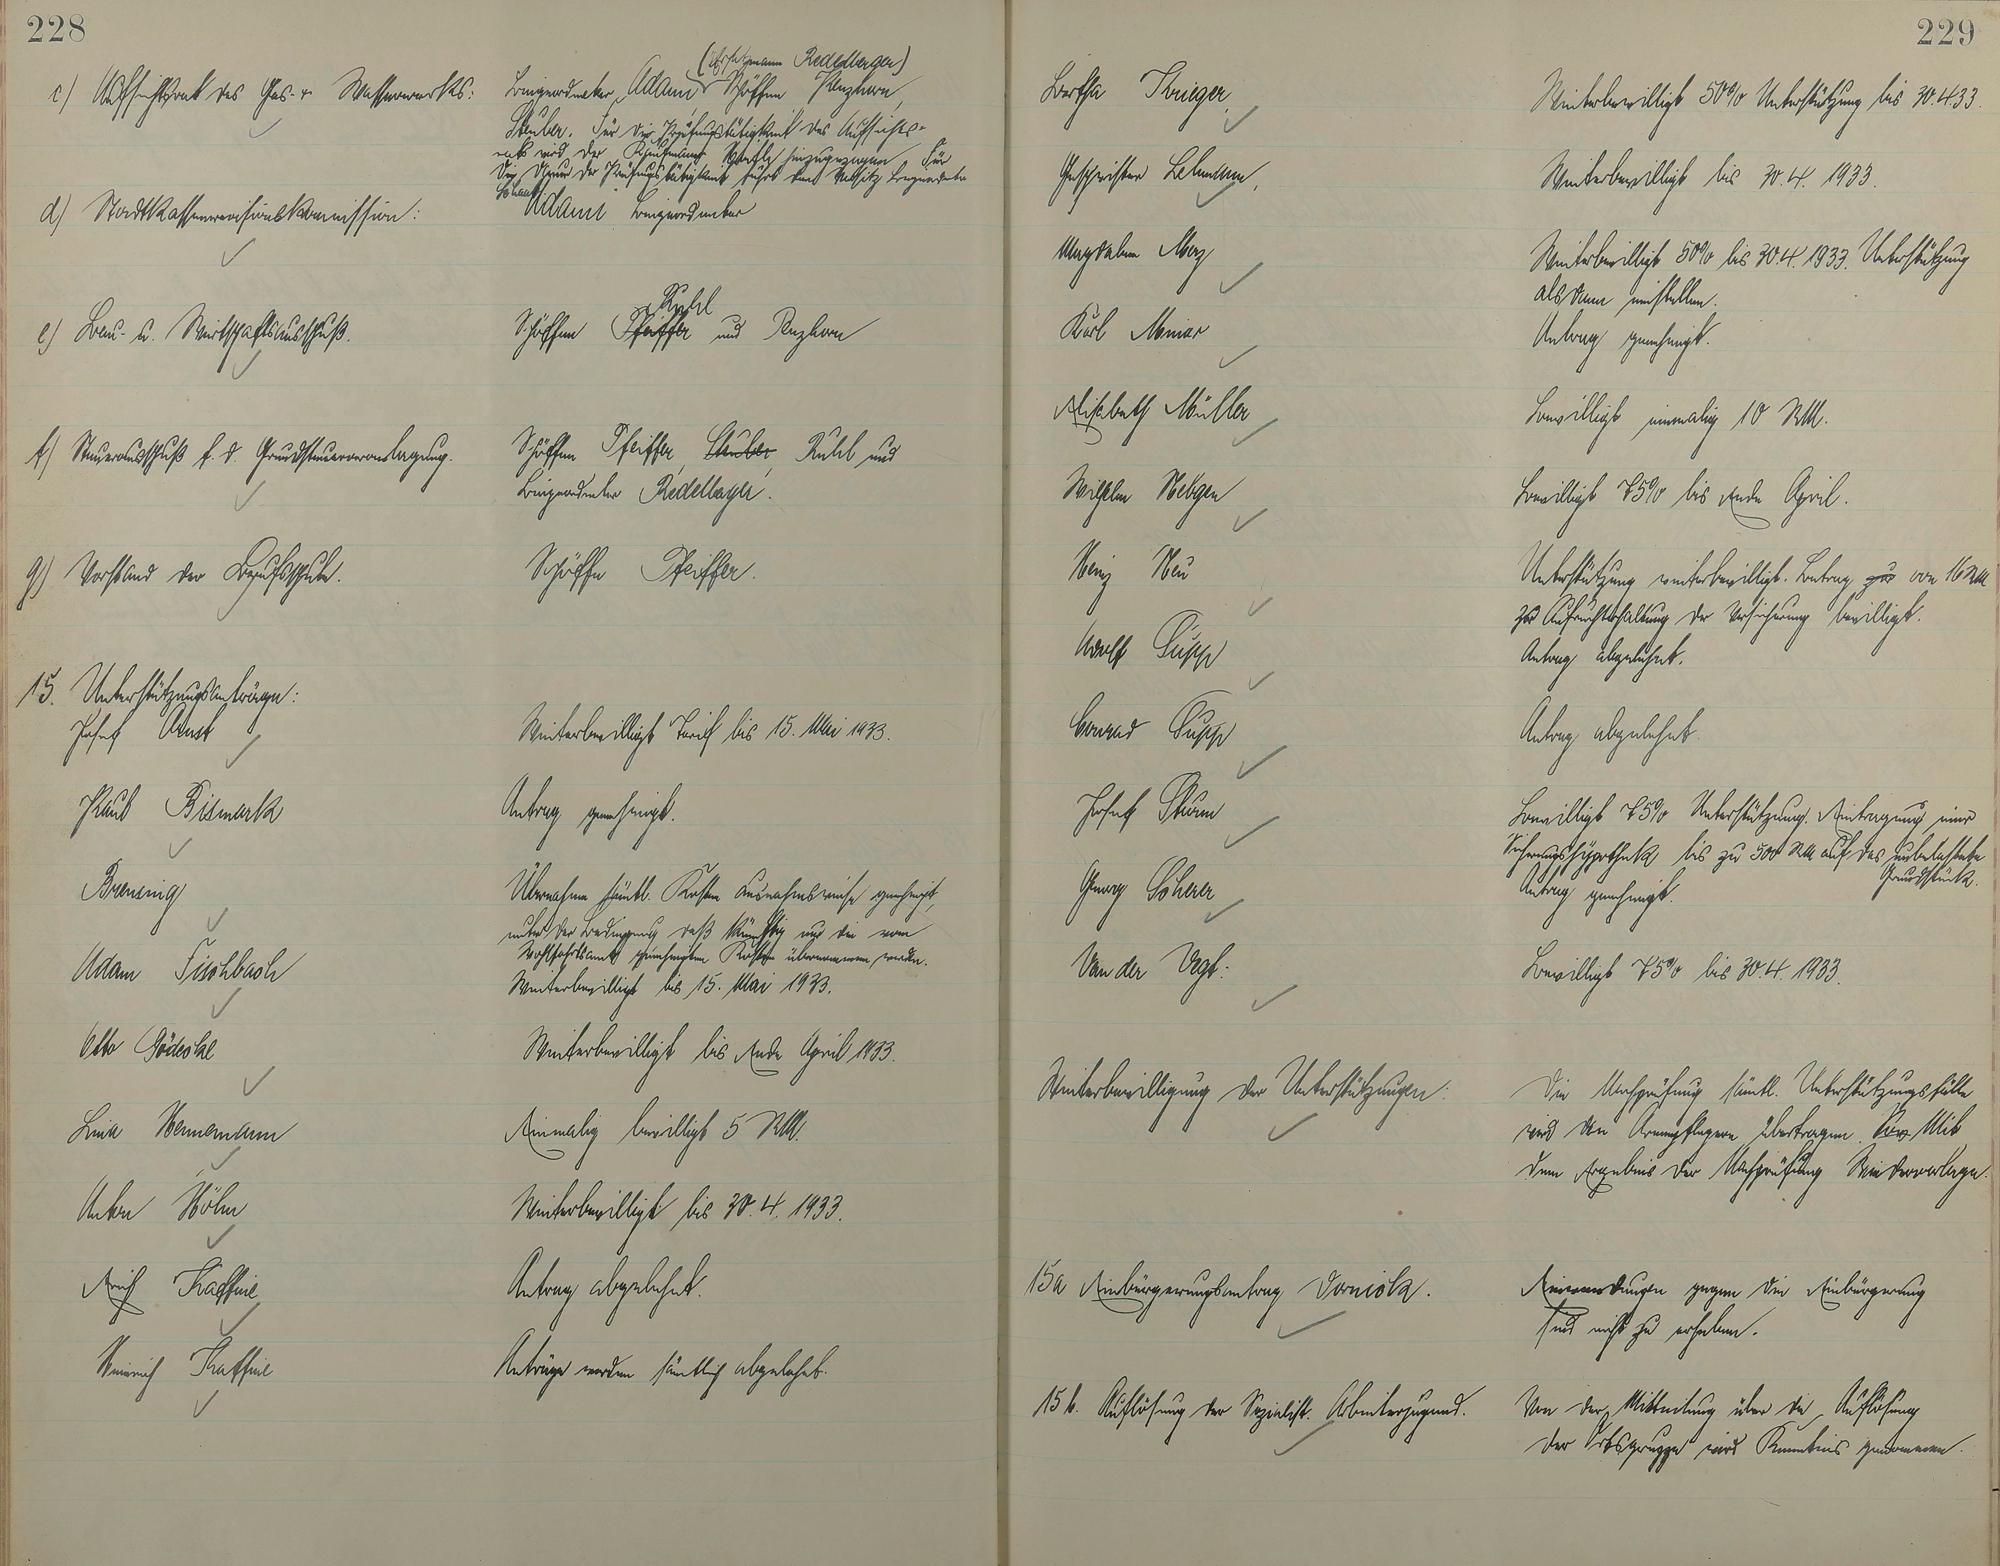 228
c) Aufsichtsrat des Gas- u. Wasserwerks:
(Ersatzmann Redelberger)
Beigeordneter Adami Schöffen Penzhorn,
Stuber. Für die Prüfungstätigkeit des Aufsichts-
rats wird der Kaufmann hinzugezogen. Für
die Dauer der Prüfungstätigkeit führt den Vorsitz Beigeordneter
d) Stadtkassenrevisionskommission:
Adami Beigeordneter
e) Bau- u. Wirtschaftsausschuß.
Ruhl
Schöffen Pfeiffer und Penzhorn
f) Steuerausschuß f. d. Grundsteuerveranlagung.
Schöffen Pfeiffer, Stuber, Ruhl und
Beigeordneter
g) Vorstand der Berufsschule.
Schöffe Pfeiffer.
15. Unterstützungsanträge:
Josef
Weiterbewilligt Tarif bis 15. Mai 1933.
Paul Bismark
Antrag genehmigt.
Brensing
Übernahme sämtl. Kosten ausnahmsweise genehmigt,
unter der Bedingung daß künftig nur die vom
Wohlfahrtsamt genehmigten Kosten übernommen werden.
Adam Fischbach
Weiterbewilligt bis 15. Mai 1933.
Otto Gödeckel
Weiterbewilligt bis Ende April 1933.
Lina Hennemann
Einmalig bewilligt 5 RM.
Anton Höhn
Weiterbewilligt bis 30.4.1933.
Erich Kaffine
Antrag abgelehnt.
Heinrich Kaffine
Anträge werden sämtlich abgelehnt.
229
Bertha Krieger
Weiterbewilligt 50% Unterstützung bis 30.4.33.
Geschwister Lehmann,
Weiterbewilligt bis 30.4. 1933.
Magdalena Merz
Weiterbewilligt 50% bis 30.4. 1933. Unterstützung
alsdann einstellen.
Karl
Antrag genehmigt.
Elisabeth Müller
Bewilligt einmalig 10 RM.
Wilhelm Nebgen
Bewilligt 75% bis Ende April.
Heinz Neu
Unterstützung weiterbewilligt. Betrag zur von 16 RM
zur Aufrechterhaltung der Versicherung bewilligt.
Adolf Supp
Antrag abgelehnt.
Conrad Supp
Antrag abgelehnt.
Josef Sturm
Bewilligt 75% Unterstützung. Eintragung einer
Sicherungshypothek bis zu 500 RM auf das unbelastete
Grundstück.
Georg Scherer
Antrag genehmigt.
Van der Vegt:
Bewilligt 75% bis 30.4. 1933.
Weiterbewilligung der Unterstützungen:
Die Nachprüfung sämtl. Unterstützungsfälle
wird den Armenpflegern übertragen. Mit
dem Ergebnis der Nachprüfung Wiedervorlage.
15a Einbürgerungsantrag Vornick.
Einwendungen gegen die Einbürgerung
sind nicht zu erheben.
15b. Auflösung der Sozialist. Arbeiterjugend.
Von der Mitteilung über die Auflösung
der Ortsgruppe wird Kenntnis genommen.